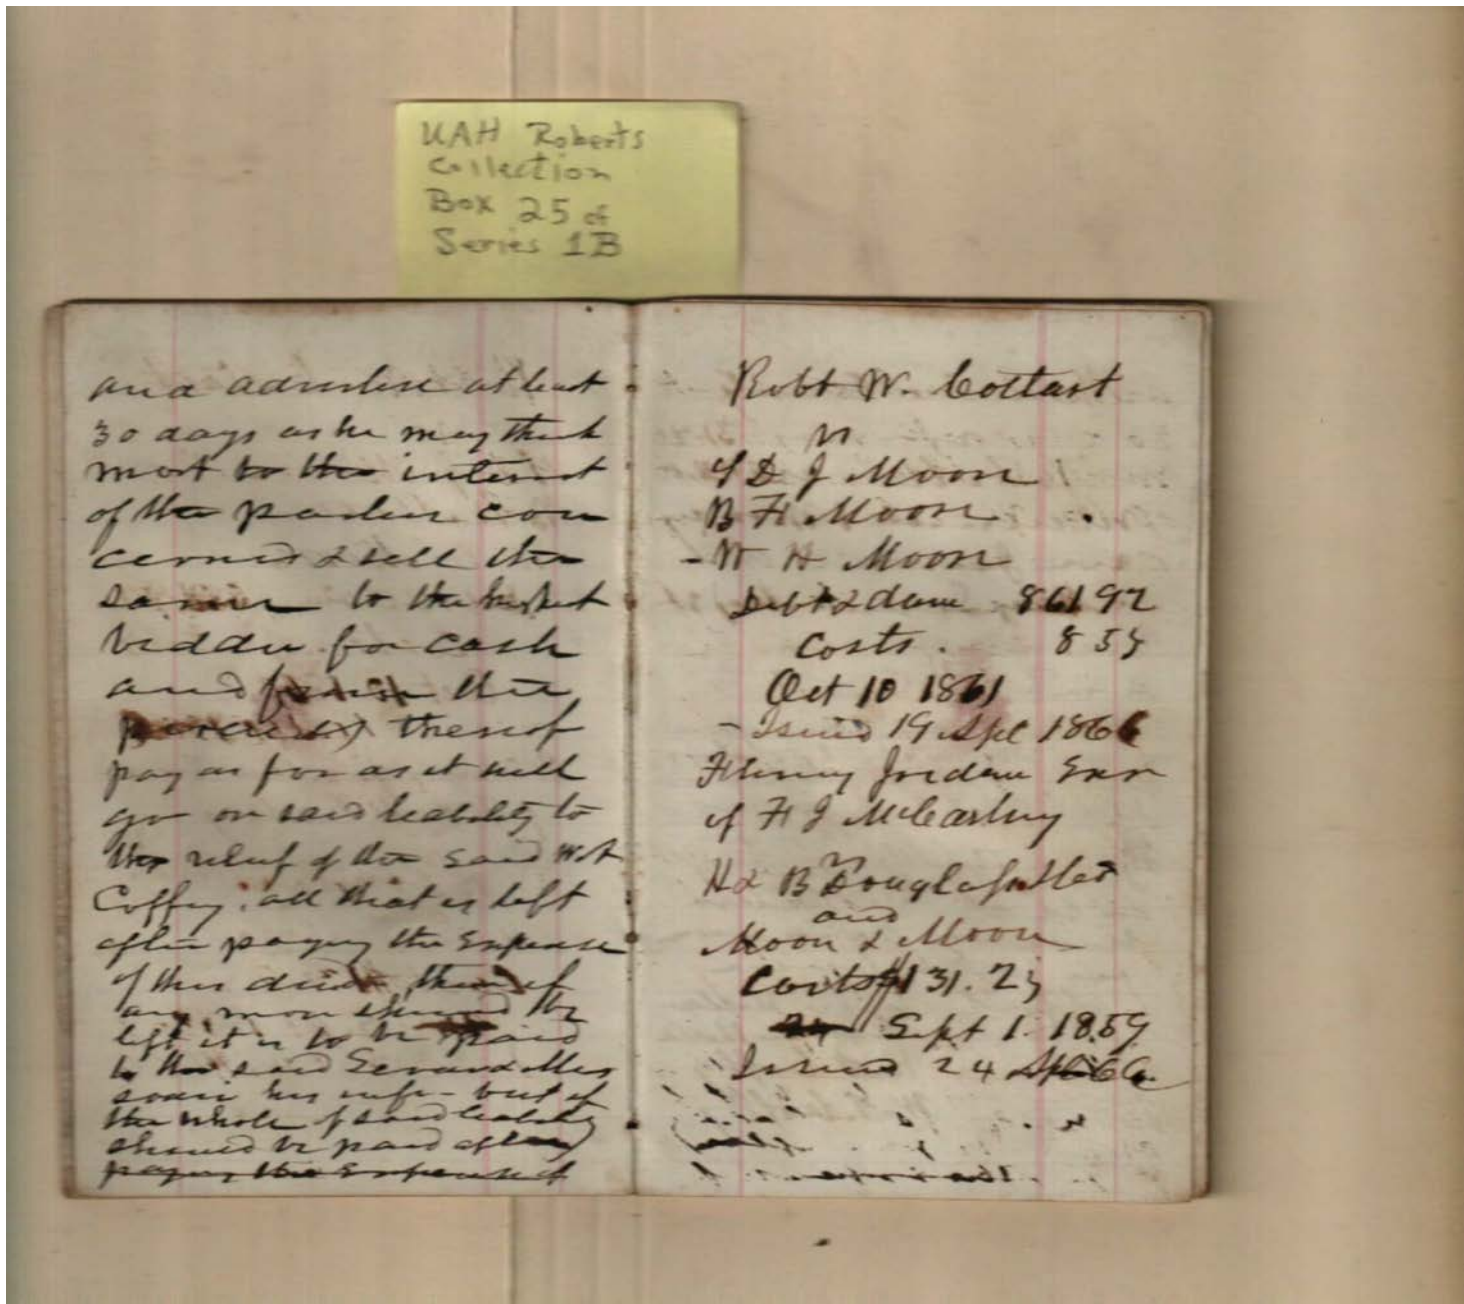 UAH Roberts
Collection
Box 25 of
Series 1B
and advertise at least
30 days as he may think
most to the interest
of the parties con
cerned & sell the
same to the highest
bidder for cash
and the
thereof
pay as far as it will
go on said liability to
the relief of the said
Coffey, all that is left
after paying the Expense
of this deed
any more should be
left it is to be paid
to the said
his wife - but if
the whole of said liability
should be paid after
paying the Expense of
Robt W. Cottart
vs
of D J Moon
B F Moon
- W H Moon
Debt & dam 861 92
Costs. 8 55
Oct 10 1861
- Issued 19 Apl 1866
Jordan Exr
of F J McCartney
vs
H & B Douglass
and
Moon & Moon
Costs $131.25
Sept 1. 1859
Issued 24 Apl 66